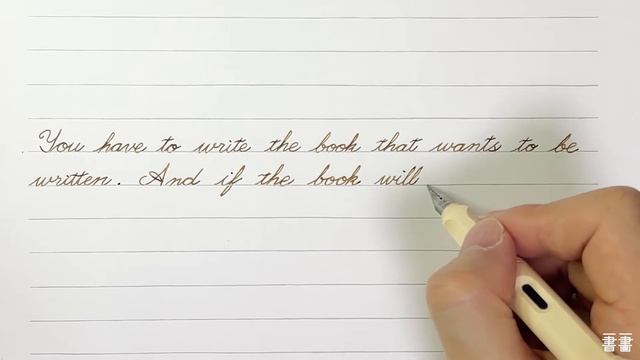 You have to write the book that wants to be
written. And if the book will
書畫